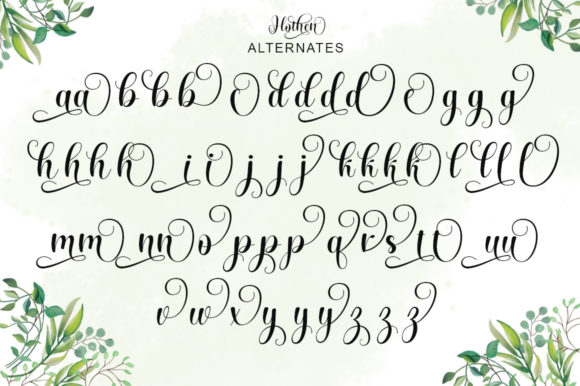 Hothen
ALTERNATES
aa b b b c d d d d e g g g
h h h h i i j j j k k k k l l l l
m m n n o p p p q r s t t u u
v w x y y y z z z